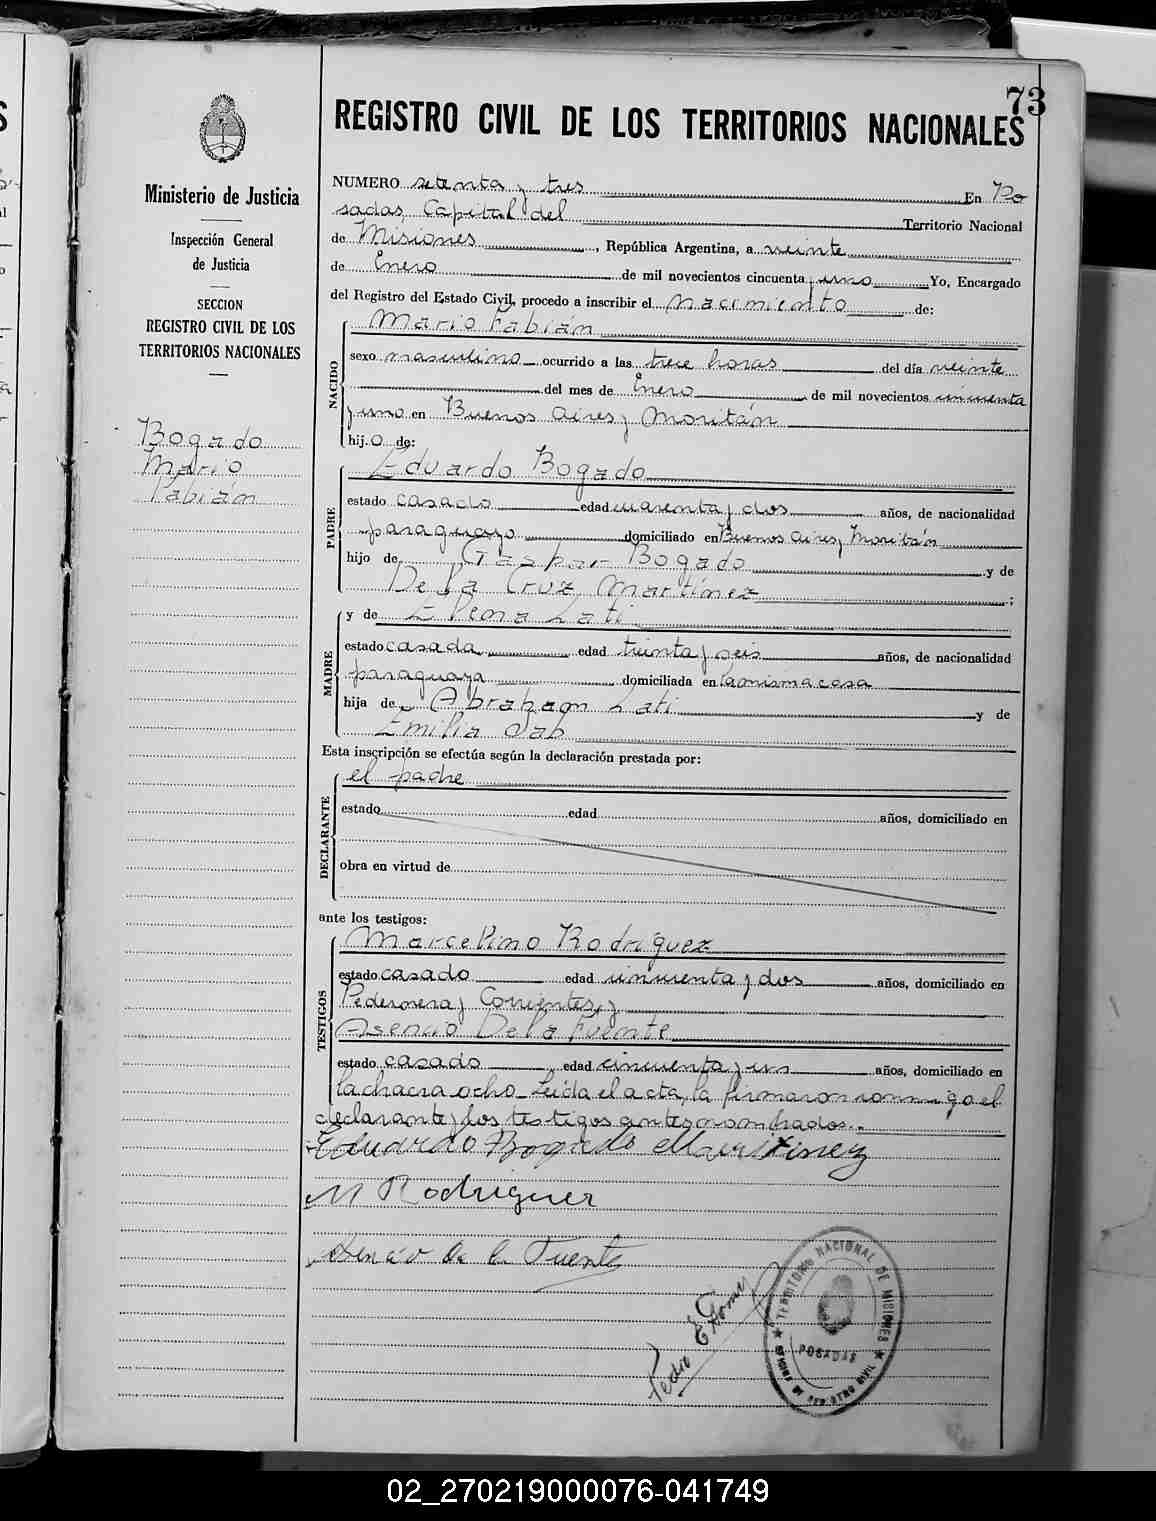 73
REGISTRO CIVIL DE LOS TERRITORIOS NACIONALES
Ministerio de Justicia
Inspección General
de Justicia
SECCION
REGISTRO CIVIL DE LOS
TERRITORIOS NACIONALES
Bogado
Mario
Fabián
NUMERO setenta y tres En Po
sadas, Capital del Territorio Nacional
de Misiones, República Argentina, a veinte
de Enero de mil novecientos cincuenta y uno Yo, Encargado
del Registro del Estado Civil, procedo a inscribir el nacimiento de:
NACIDO
Mario Fabián
sexo masculino ocurrido a las trece horas del día veinte
del mes de Enero de mil novecientos cincuenta
y uno en Buenos Aires y Moritán
hij.o de:
PADRE
Eduardo Bogado
estado casado edad cuarenta y dos años, de nacionalidad
paraguayo domiciliado en Buenos Aires y Moritán
hijo de Gaspar Bogado y de
De la Cruz Martínez ;
MADRE
y de Elena Lati
estado casada edad treinta y seis años, de nacionalidad
paraguaya domiciliada en la misma casa
hija de Abraham Lati y de
Emilia
Esta inscripción se efectúa según la declaración prestada por:
DECLARANTE
el padre
estado edad años, domiciliado en
obra en virtud de
ante los testigos:
TESTIGOS
Marcelino Rodríguez
estado casado edad cincuenta y dos años, domiciliado en
Pedernera y Corrientes, y
Asencio De la Fuente
estado casado edad cincuenta y un años, domiciliado en
la chacra ocho. Leída el acta, la firmaron conmigo el
declarante y los testigos antes nombrados.
Eduardo Bogado Martinez
M Rodriguez
Asencio de la Fuente
Pedro E Gomez
TERRITORIO NACIONAL DE MISIONES
POSADAS
REGISTRO CIVIL
02_270219000076-041749